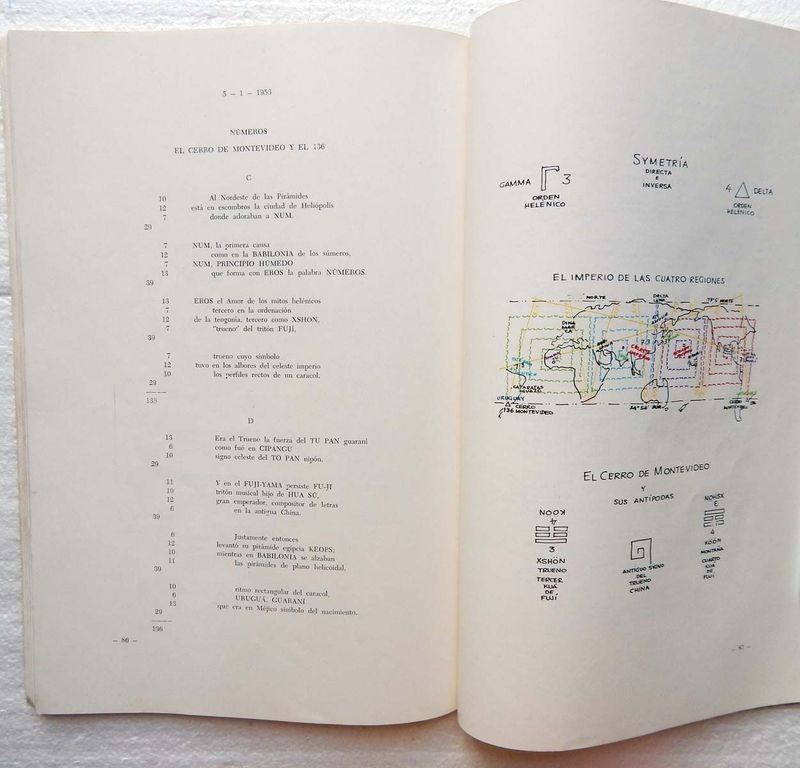 5 – 1 – 1953
NÚMEROS
EL CERRO DE MONTEVIDEO Y EL 136
C
10 Al Nordeste de las Pirámides
12 está en escombros la ciudad de Heliópolis
7 donde adoraban a NUM.
29
7 NUM, la primera causa
12 como en la BABILONIA de los súmeros,
7 NUM, PRINCIPIO HÚMEDO
13 que forma con EROS la palabra NÚMEROS.
39
13 EROS el Amor de los mitos helénicos
7 tercero en la ordenación
12 de la teogonía, tercero como XSHON,
7 "trueno" del tritón FUJI,
39
7 trueno cuyo símbolo
12 tuvo en los albores del celeste imperio
10 los perfiles rectos de un caracol.
29
D
13 Era el Trueno la fuerza del TU PAN guaraní
6 como fué en CIPANGU
10 signo celeste del TO PAN nipón.
29
11 Y en el FUJI-YAMA persiste FU-JI
10 tritón musical hijo de HUA SÜ,
12 gran emperador, compositor de letras
6 en la antigua China.
39
6 Justamente entonces
12 levantó su pirámide egipcia KEOPS;
10 mientras en BABILONIA se alzaban
11 las pirámides de plano helicoidal,
39
10 ritmo rectangular del caracol,
6 URUGUÁ, GUARANÍ
13 que era en Méjico símbolo del nacimiento.
29
136
– 86 –
SYMETRÍA
DIRECTA
E
INVERSA
GAMMA 3
ORDEN
HELÉNICO
4 DELTA
ORDEN
HELÉNICO
EL IMPERIO DE LAS CUATRO REGIONES
NORTE
DELTA
DINA
MAR
CA
CELESTE
IMPERIO
CATARATAS
URUGUAY
CERRO
136 MONTEVIDEO
CERRO
MONTEVIDEO
EL CERRO DE MONTEVIDEO
Y
SUS ANTÍPODAS
KOON
4
3
XSHÖN
TRUENO
TERCER
KUÁ
DE
FUJÍ
ANTIGUO SIGNO
DEL
TRUENO
CHINA
XSHÖN
3
4
KOÖN
MONTAÑA
CUARTO
KUÁ
DE
FUJÍ